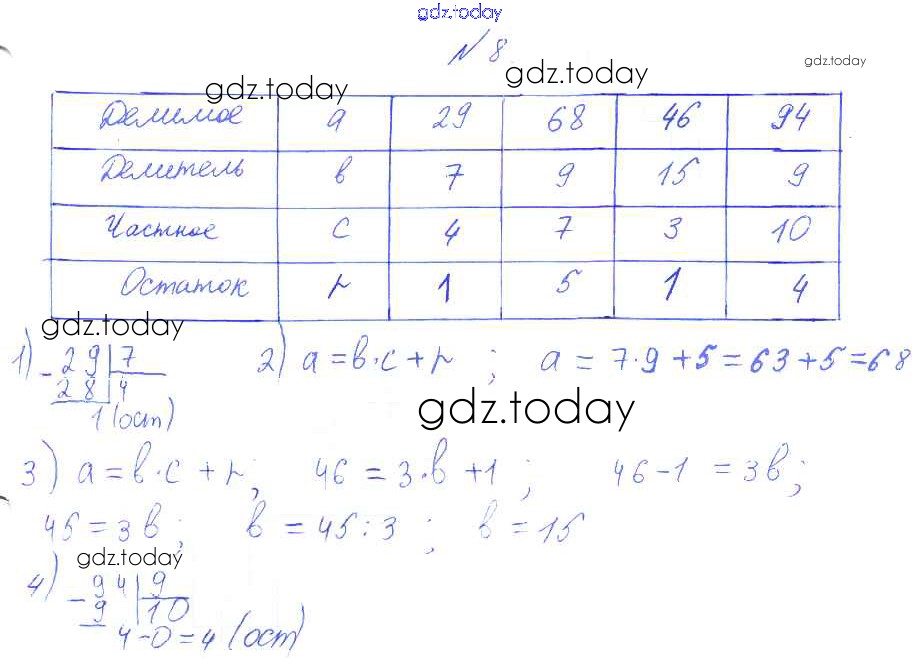 gdz.today
№ 8
gdz.today
gdz.today
gdz.today
Делимое а 29 68 46 94
Делитель в 7 9 15 9
Частное с 4 7 3 10
Остаток r 1 5 1 4
gdz.today
1) - 29 | 7
28 | 4
1 (ост)
2) а = в·с + r ; а = 7·9 + 5 = 63 + 5 = 68
gdz.today
3) а = в·с + r; 46 = 3·в + 1 ; 46 - 1 = 3в;
45 = 3в; в = 45 : 3 ; в = 15
gdz.today
4) - 94 | 9
9 | 10
4 - 0 = 4 (ост)